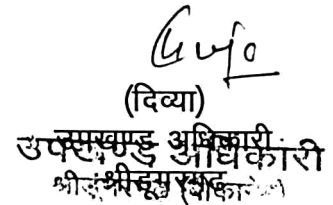 (दिव्या)
उपखण्ड अधिकारी
उपखण्ड अधिकारी
श्रीडूंगरगढ़
श्रीडूंगरगढ़ (बीकानेर)